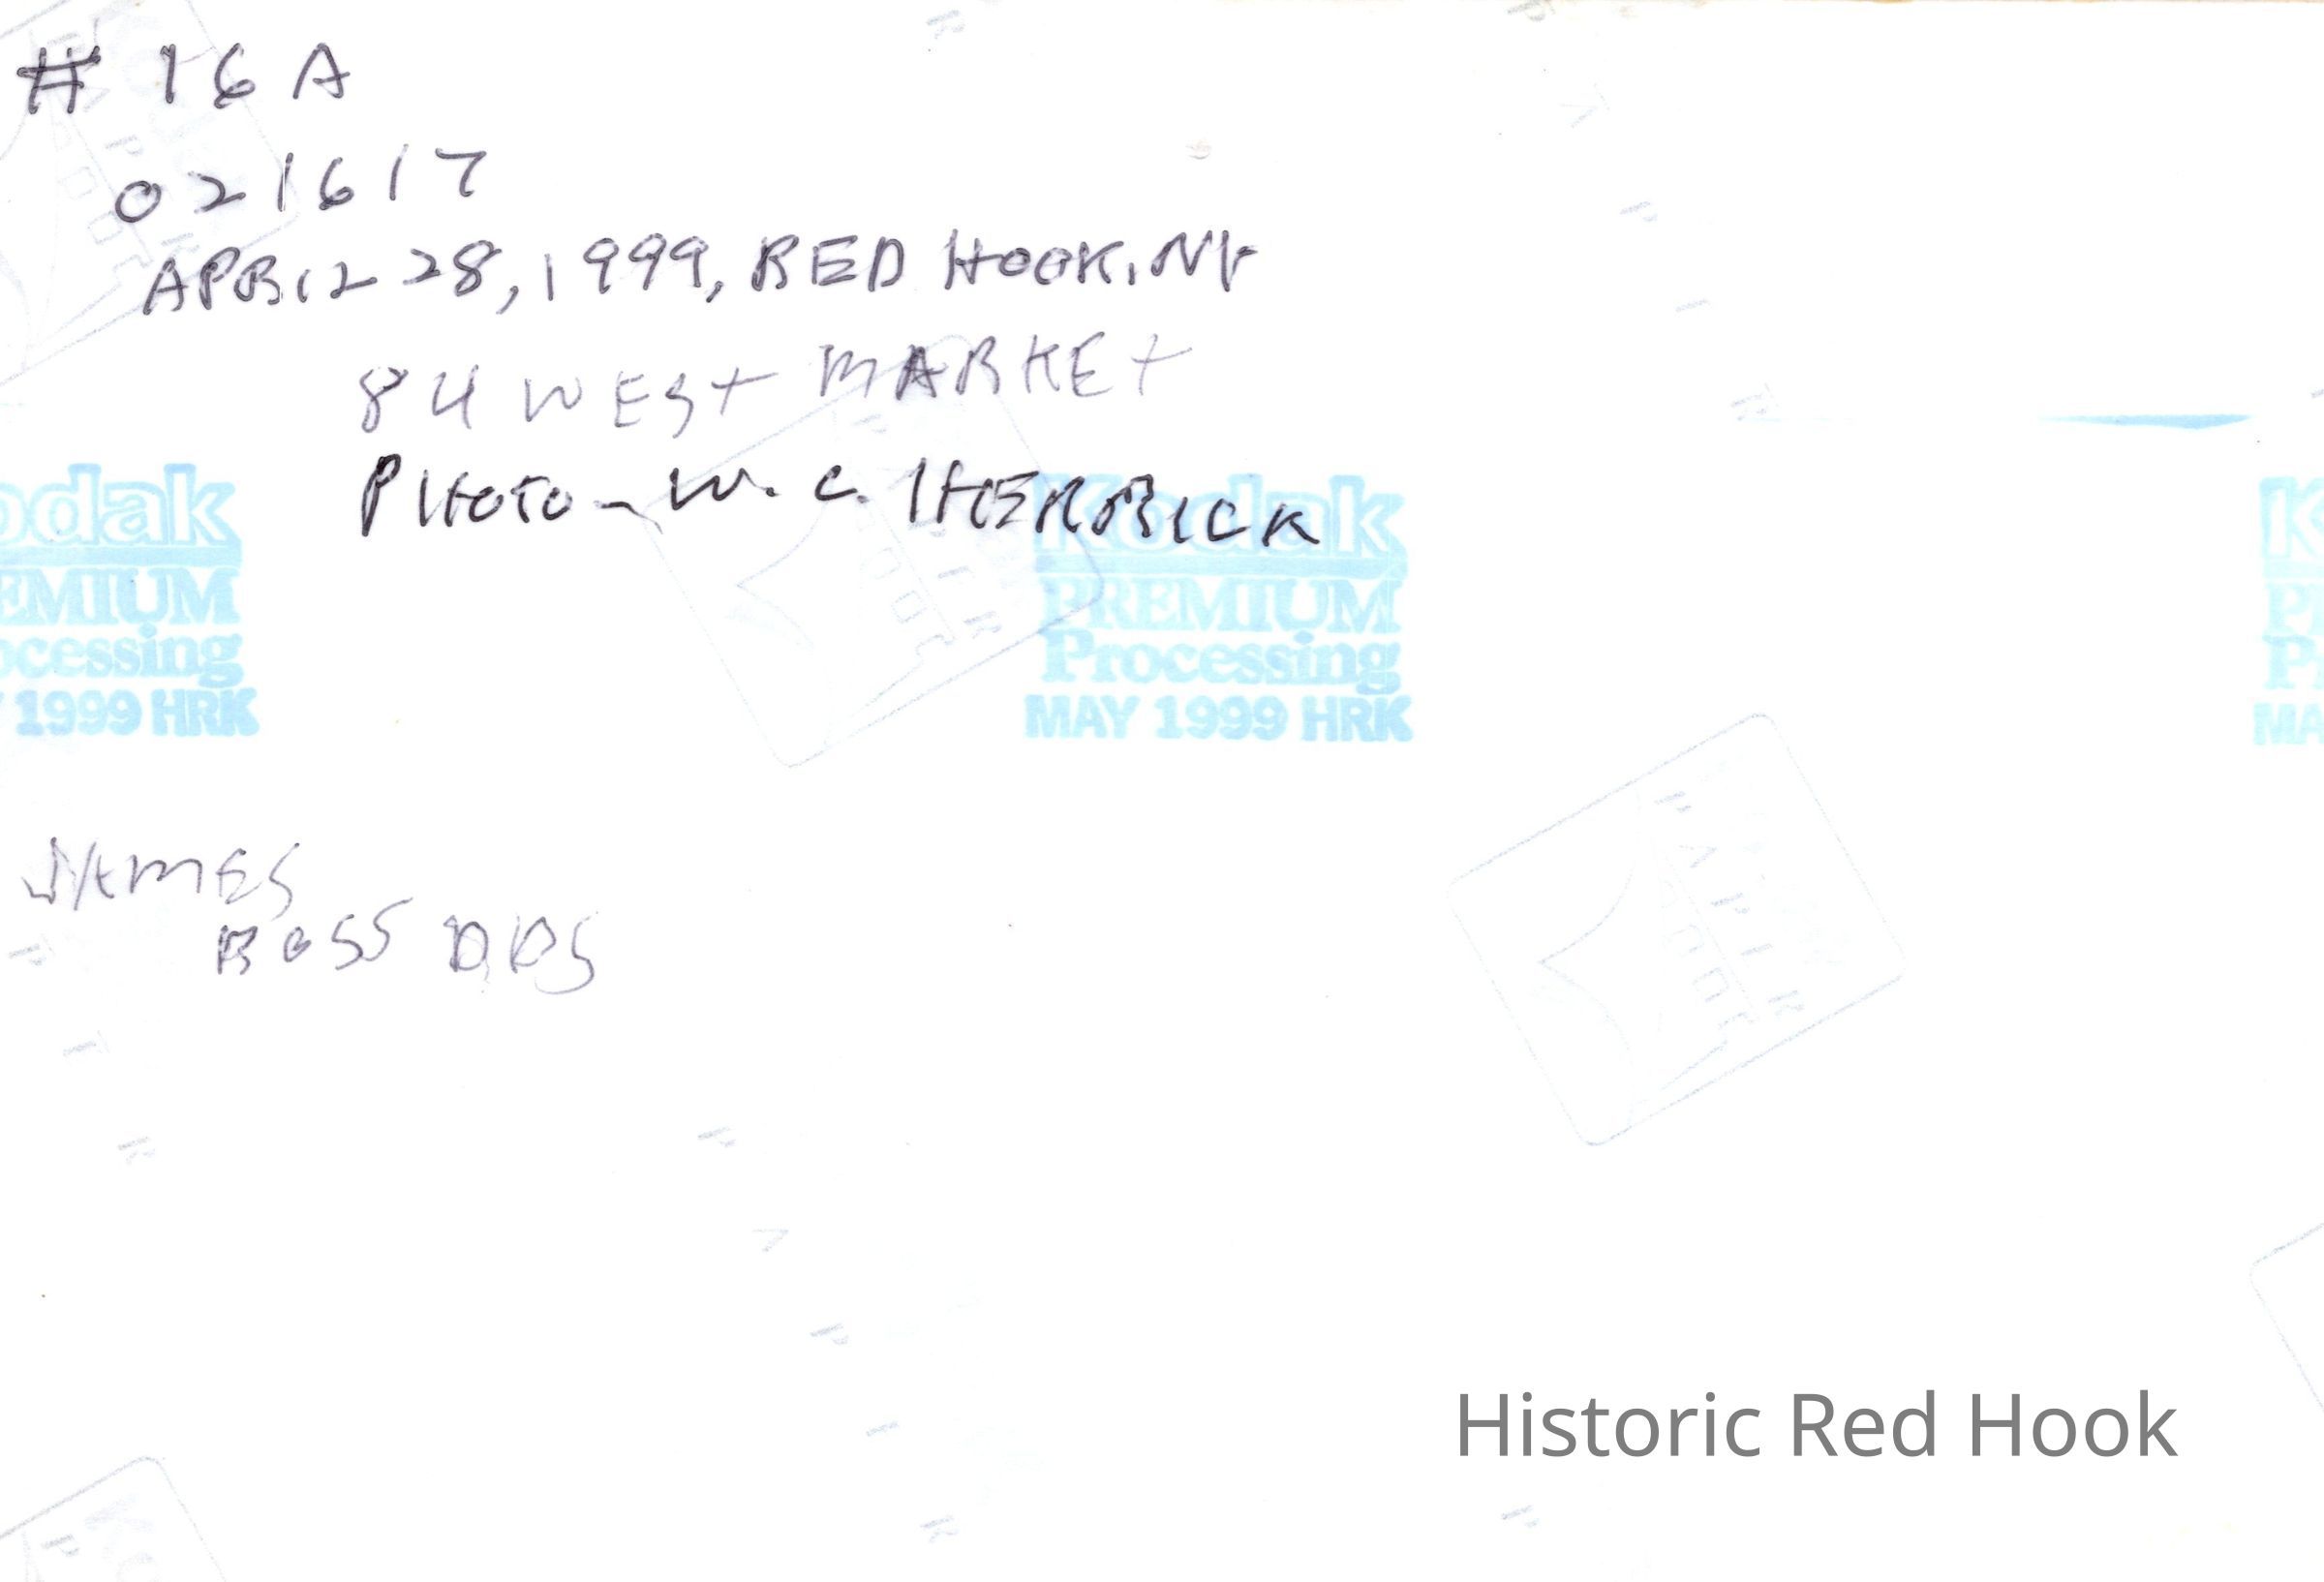 # 16 A
021617
APRIL 28, 1999, RED HOOK, NY
84 WEST MARKET
PHOTO - W. C. HERRICK
odak
EMIUM
ocessing
1999 HRK
Kodak
PREMIUM
Processing
MAY 1999 HRK
JAMES
ROSS DDS
Historic Red Hook